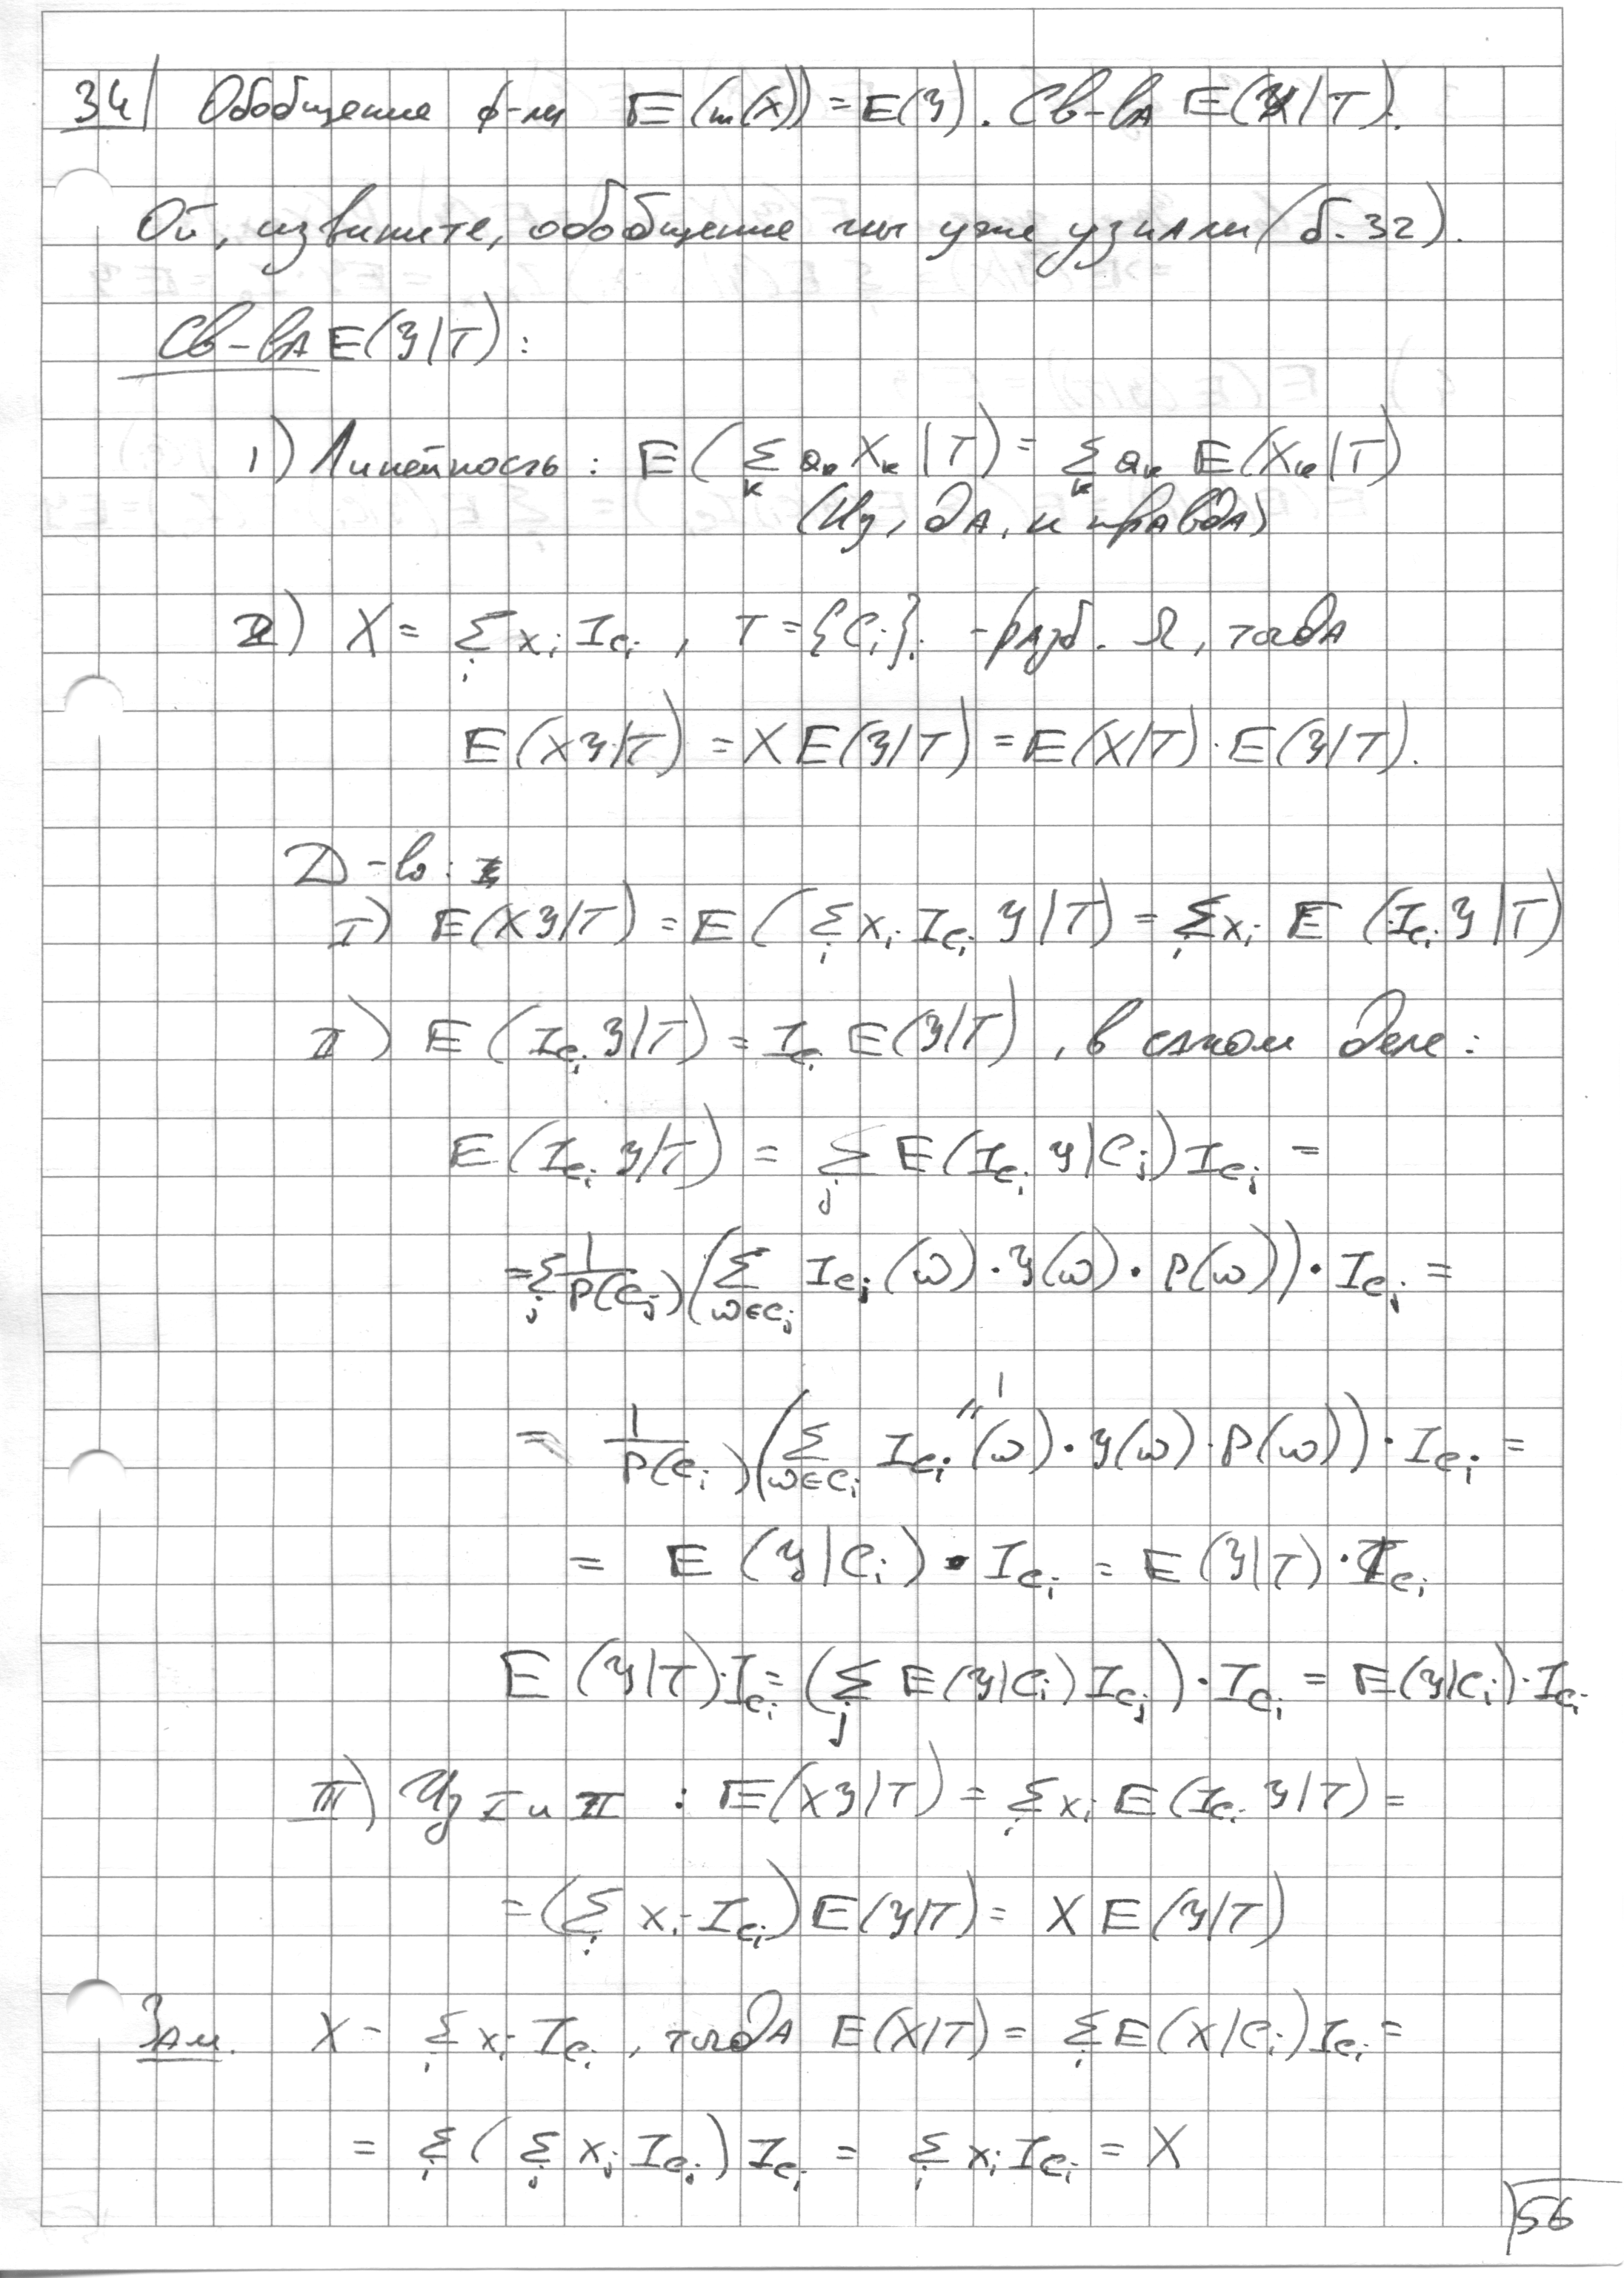 34) Обобщение ф-лы E(m(X)) = E(Y). Св-ва E(Y|T).
Ой, извините, обобщение мы уже узнали (б. 32).
Св-ва E(Y|T):
1) Линейность: E(∑_k a_k X_k | T) = ∑_k a_k E(X_k | T)
(Ну, да, и правда)
2) X = ∑_i x_i I_{C_i}, T = {C_i}_i - разб. Ω, тогда
E(XY|T) = X E(Y|T) = E(X|T) · E(Y|T).
Д-во:
I) E(XY|T) = E(∑_i x_i I_{C_i} Y | T) = ∑_i x_i E(I_{C_i} Y | T)
II) E(I_{C_i} Y | T) = I_{C_i} E(Y|T), в самом деле:
E(I_{C_i} Y | T) = ∑_j E(I_{C_i} Y | C_j) I_{C_j} =
= ∑_j 1/P(C_j) (∑_{ω∈C_j} I_{C_i}(ω) · Y(ω) · P(ω)) · I_{C_j} =
1
"
= 1/P(C_i) (∑_{ω∈C_i} I_{C_i}(ω) · Y(ω) · P(ω)) · I_{C_i} =
= E(Y|C_i) · I_{C_i} = E(Y|T) · I_{C_i}
E(Y|T) · I_{C_i} = (∑_j E(Y|C_i) I_{C_j}) · I_{C_i} = E(Y|C_i) · I_{C_i}
III) Из I и II : E(XY|T) = ∑_i x_i E(I_{C_i} Y | T) =
= (∑_i x_i I_{C_i}) E(Y|T) = X E(Y|T)
Зам. X = ∑_i x_i I_{C_i}, тогда E(X|T) = ∑_i E(X|C_i) I_{C_i} =
= ∑_i (∑_j x_j I_{C_j}) I_{C_i} = ∑_i x_i I_{C_i} = X
56